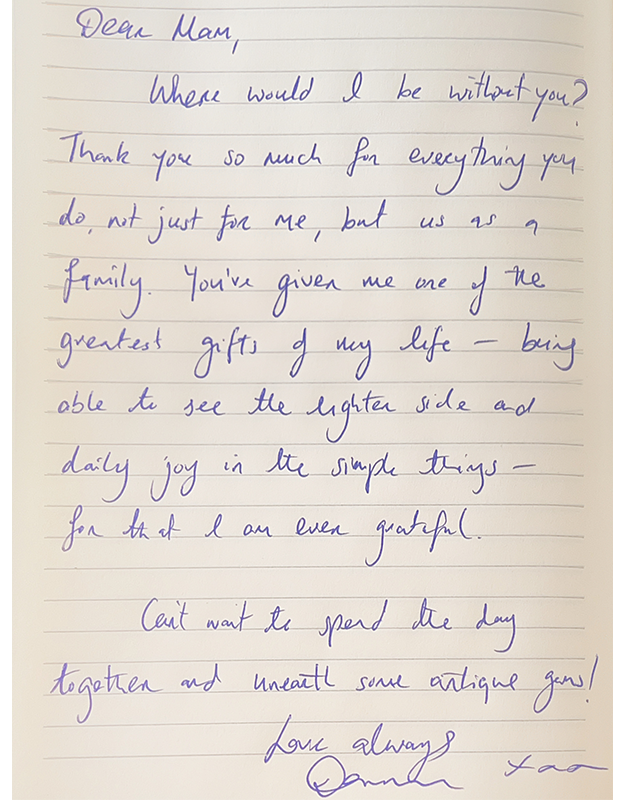 Dear Mam,
Where would I be without you?
Thank you so much for everything you
do, not just for me, but us as a
family. You've given me one of the
greatest gifts of my life – being
able to see the lighter side and
daily joy in the simple things –
for that I am ever grateful.
Can't wait to spend the day
together and unearth some antique gems!
Love always